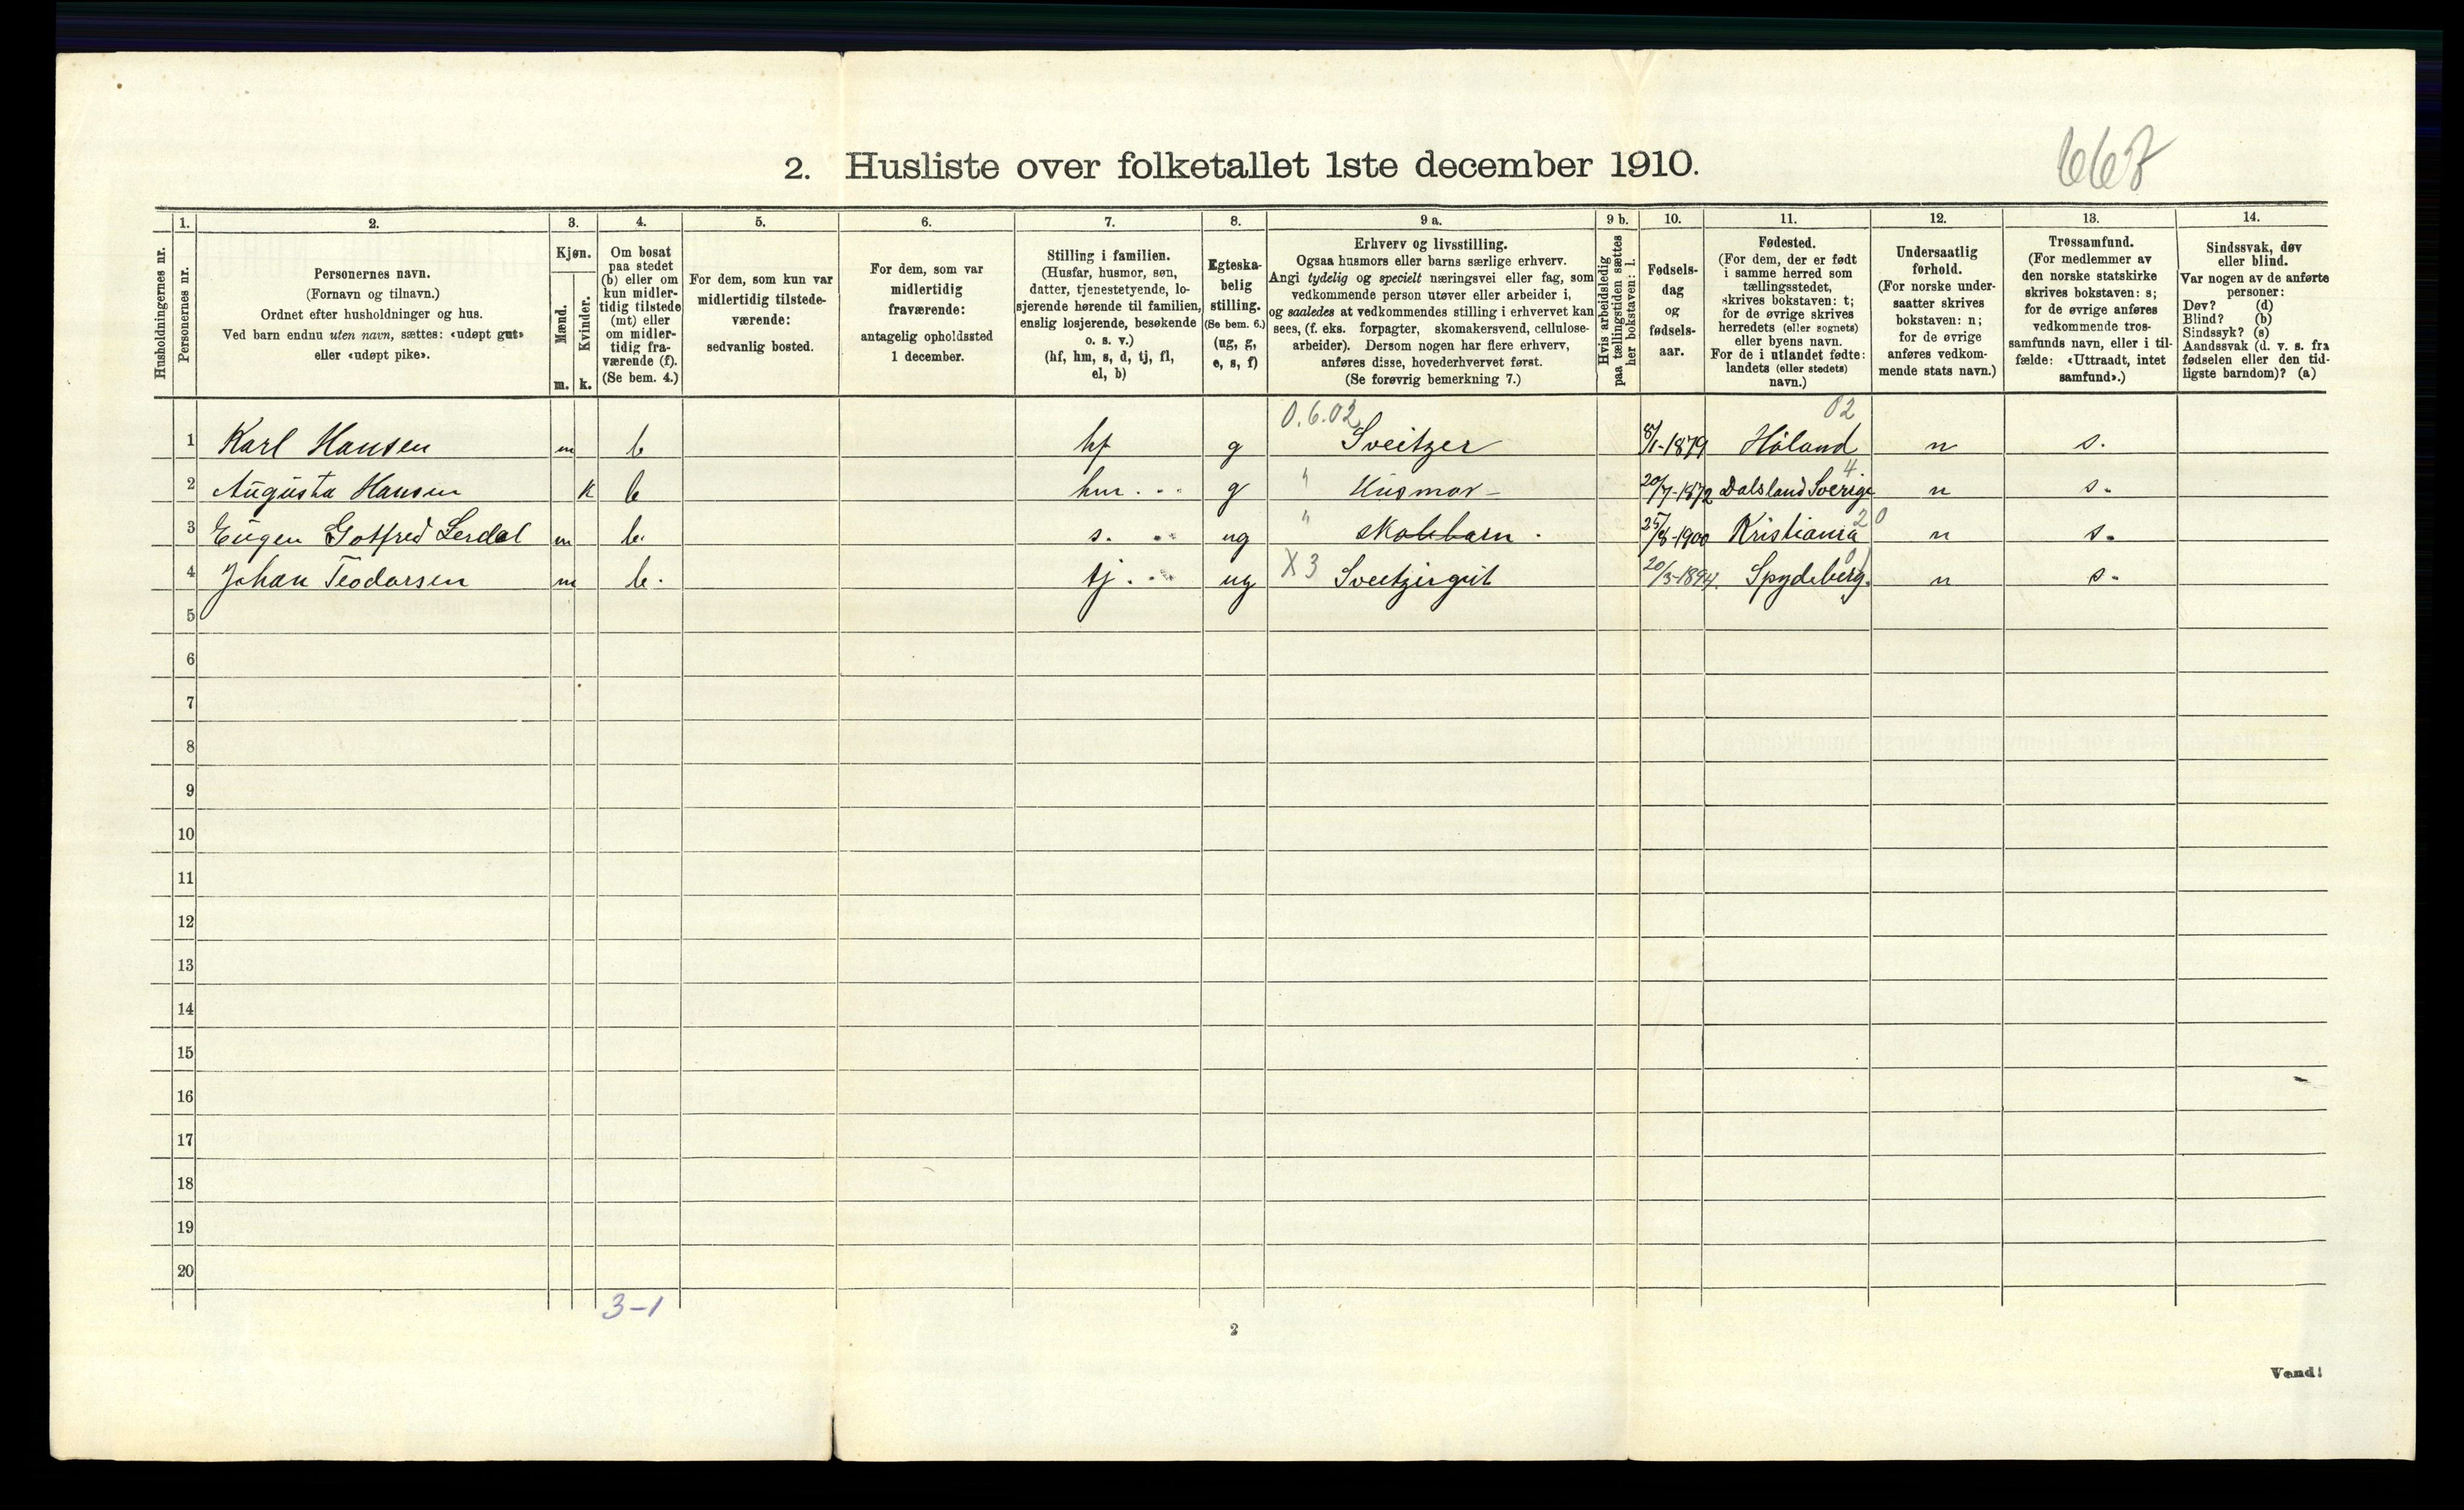 667
2. Husliste over folketallet 1ste december 1910.
Husholdningernes nr.
1.
Personernes nr.
2.
Personernes navn.
(Fornavn og tilnavn.)
Ordnet efter husholdninger og hus.
Ved barn endnu uten navn, sættes: «udøpt gut»
eller «udøpt pike».
3.
Kjøn.
Mænd.
Kvinder.
m. k.
4.
Om bosat
paa stedet
(b) eller om
kun midler-
tidig tilstede
(mt) eller
om midler-
tidig fra-
værende (f).
(Se bem. 4.)
5.
For dem, som kun var
midlertidig tilstede-
værende:
sedvanlig bosted.
6.
For dem, som var
midlertidig
fraværende:
antagelig opholdssted
1 december.
7.
Stilling i familien.
(Husfar, husmor, søn,
datter, tjenestetyende, lo-
sjerende hørende til familien,
enslig losjerende, besøkende
o. s. v.)
(hf, hm, s, d, tj, fl,
el, b)
8.
Egteska-
belig
stilling.
(Se bem. 6.)
(ug, g,
e, s, f)
9 a.
Erhverv og livsstilling.
Ogsaa husmors eller barns særlige erhverv.
Angi tydelig og specielt næringsvei eller fag, som
vedkommende person utøver eller arbeider i,
og saaledes at vedkommendes stilling i erhvervet kan
sees, (f. eks. forpagter, skomakersvend, cellulose-
arbeider). Dersom nogen har flere erhverv,
anføres disse, hovederhvervet først.
(Se forøvrig bemerkning 7.)
9 b.
Hvis arbeidsledig
paa tællingstiden sættes
her bokstaven: l.
10.
Fødsels-
dag
og
fødsels-
aar.
11.
Fødested.
(For dem, der er født
i samme herred som
tællingsstedet,
skrives bokstaven: t;
for de øvrige skrives
herredets (eller sognets)
eller byens navn.
For de i utlandet fødte:
landets (eller stedets)
navn.)
12.
Undersaatlig
forhold.
(For norske under-
saatter skrives
bokstaven: n;
for de øvrige
anføres vedkom-
mende stats navn.)
13.
Trossamfund.
(For medlemmer av
den norske statskirke
skrives bokstaven: s;
for de øvrige anføres
vedkommende tros-
samfunds navn, eller i til-
fælde: «Uttraadt, intet
samfund».)
14.
Sindssvak, døv
eller blind.
Var nogen av de anførte
personer:
Døv? (d)
Blind? (b)
Sindssyk? (s)
Aandssvak (d. v. s. fra
fødselen eller den tid-
ligste barndom)? (a)
0.6.02 02
1 Karl Hansen m b hf g Sveitzer 8/1-1879 Höland n s.
2 Augusta Hansen k b hm g " Husmor - 20/7-1872 Dalsland Sverige 4. n s.
3 Eugen Gotfred Lerdal m b. s. ug " Skolebarn. 25/8-1900 Kristiania 20 n s.
4 Johan Teodorsen m b. tj. ug X3 Sveitzergut 20/3-1894. Spydeberg. n s.
5
6
7
8
9
10
11
12
13
14
15
16
17
18
19
20
3-1
2
Vend!